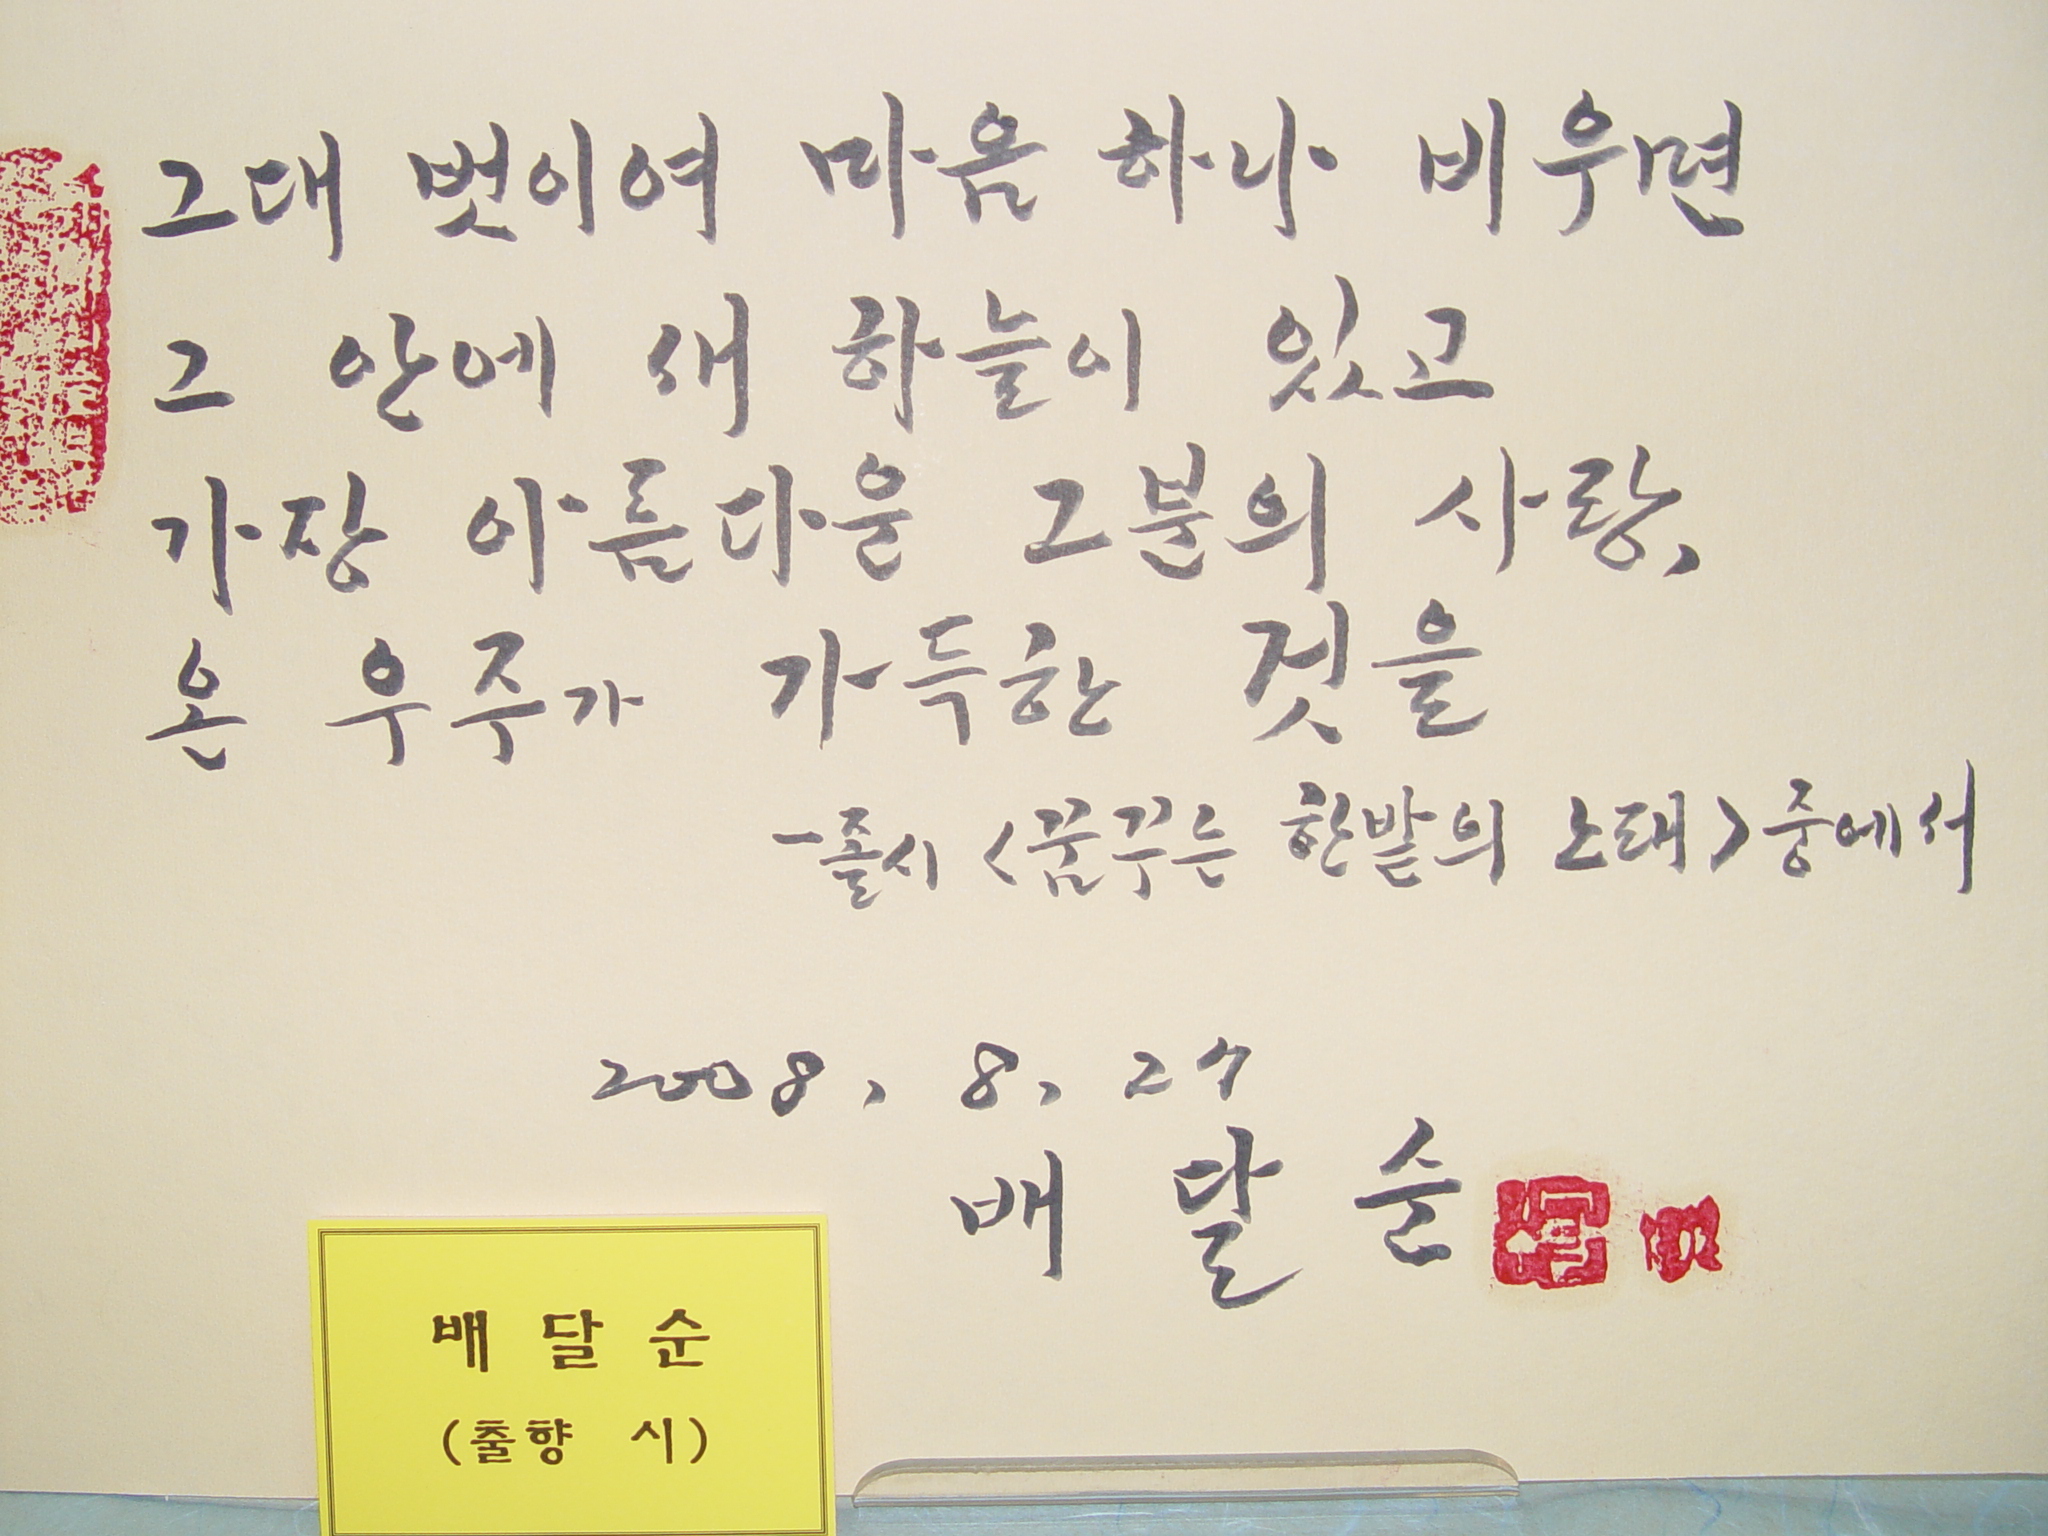 그대 벗이여 마음 하나 비우면
그 안에 새 하늘이 있고
가장 아름다운 그분의 사랑,
온 우주가 가득한 것을
-졸시 <꿈꾸는 한밭의 노래> 중에서
2008, 8, 27
배 달 순
배 달 순
(출향 시)